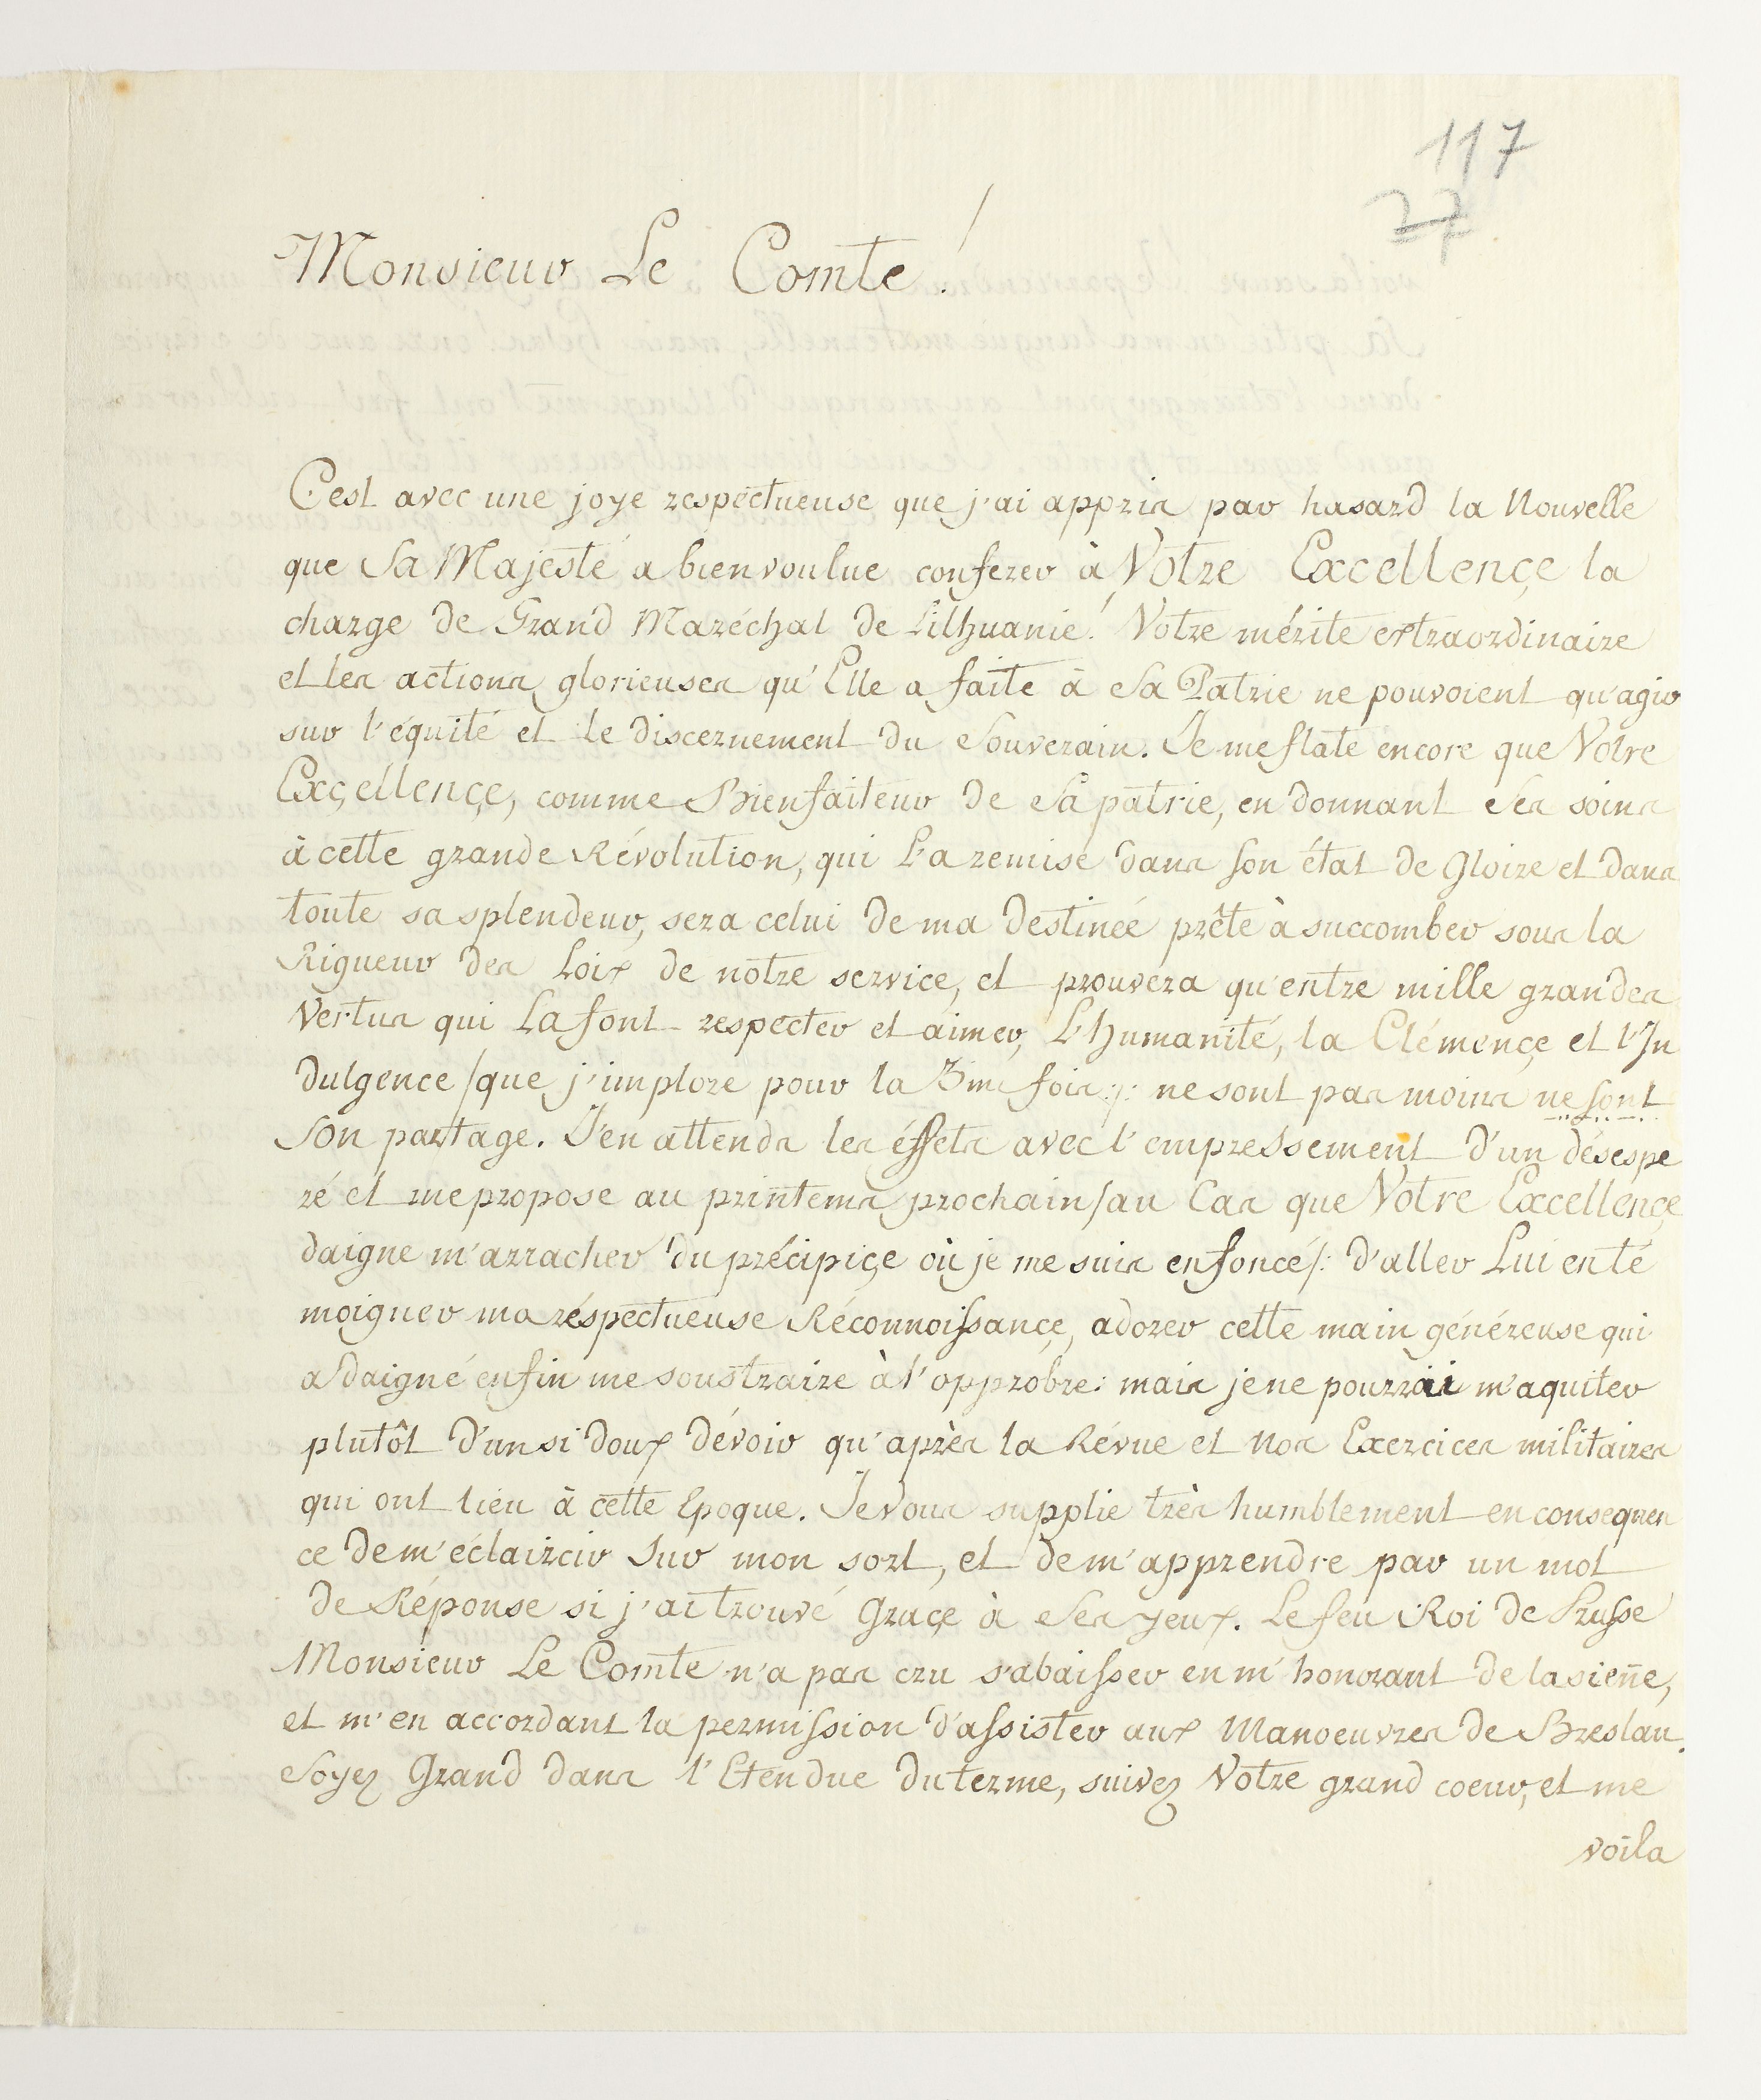 117
27
Monsieur Le Comte!
C'est avec une joye respéctueuse que j'ai appris par hasard la Nouvelle
que Sa Majesté a bien voulue conferer à Votre Excellençe la
charge de Grand Maréchal de Lithuanie! Votre mérite extraordinaire
et les actions glorieuses qu'Elle a faite à Sa Patrie ne pouvoient qu'agir
sur l'équité et le discernement du Souverain. Je me flate encore que Votre
Exçellençe, comme Bienfaiteur de Sa patrie, en donnant Ses soins
à cette grande Révolution, qui L'a remise dans son état de Gloire et dans
toute sa splendeur, sera celui de ma destinée prête à succomber sous la
Rigueur des Loix de notre service, et prouvera qu'entre mille grandes
Vertus qui La font respecter et aimer, L'humanité, la Clémençe et l'In
dulgence /que j'implore pour la 3me fois:/: ne sont pas moins ne sont
Son partage. J'en attends les éffets avec l'empressement d'un désespe
ré et me propose au printems prochain /au Cas que Votre Excellençe
daigne m'arracher du précipiçe où je me suis enfoncé/: d'aller Lui en té
moigner ma réspectueuse Réconnoissançe, adorer cette main généreuse qui
a daigné enfin me soustraire à l'opprobre: mais je ne pourrai m'aquiter
plutôt d'un si doux dévoir qu'après la Révue et nos Exercices militaires
qui ont lieu à cette Epoque. Je Vous supplie très humblement en consequen
ce de m'éclaircir Sur mon sort, et de m'apprendre par un mot
de Réponse si j'ai trouvé Graçe à Ses yeux. Le feu Roi de Prusse
Monsieur Le Comte n'a pas cru s'abaisser en m'honorant de la sieñe,
et m'en accordant la permission d'assister aux Manoeuvres de Breslau.
Soyez Grand dans l'Etendue du terme, suivez Votre grand coeur, et me
voila